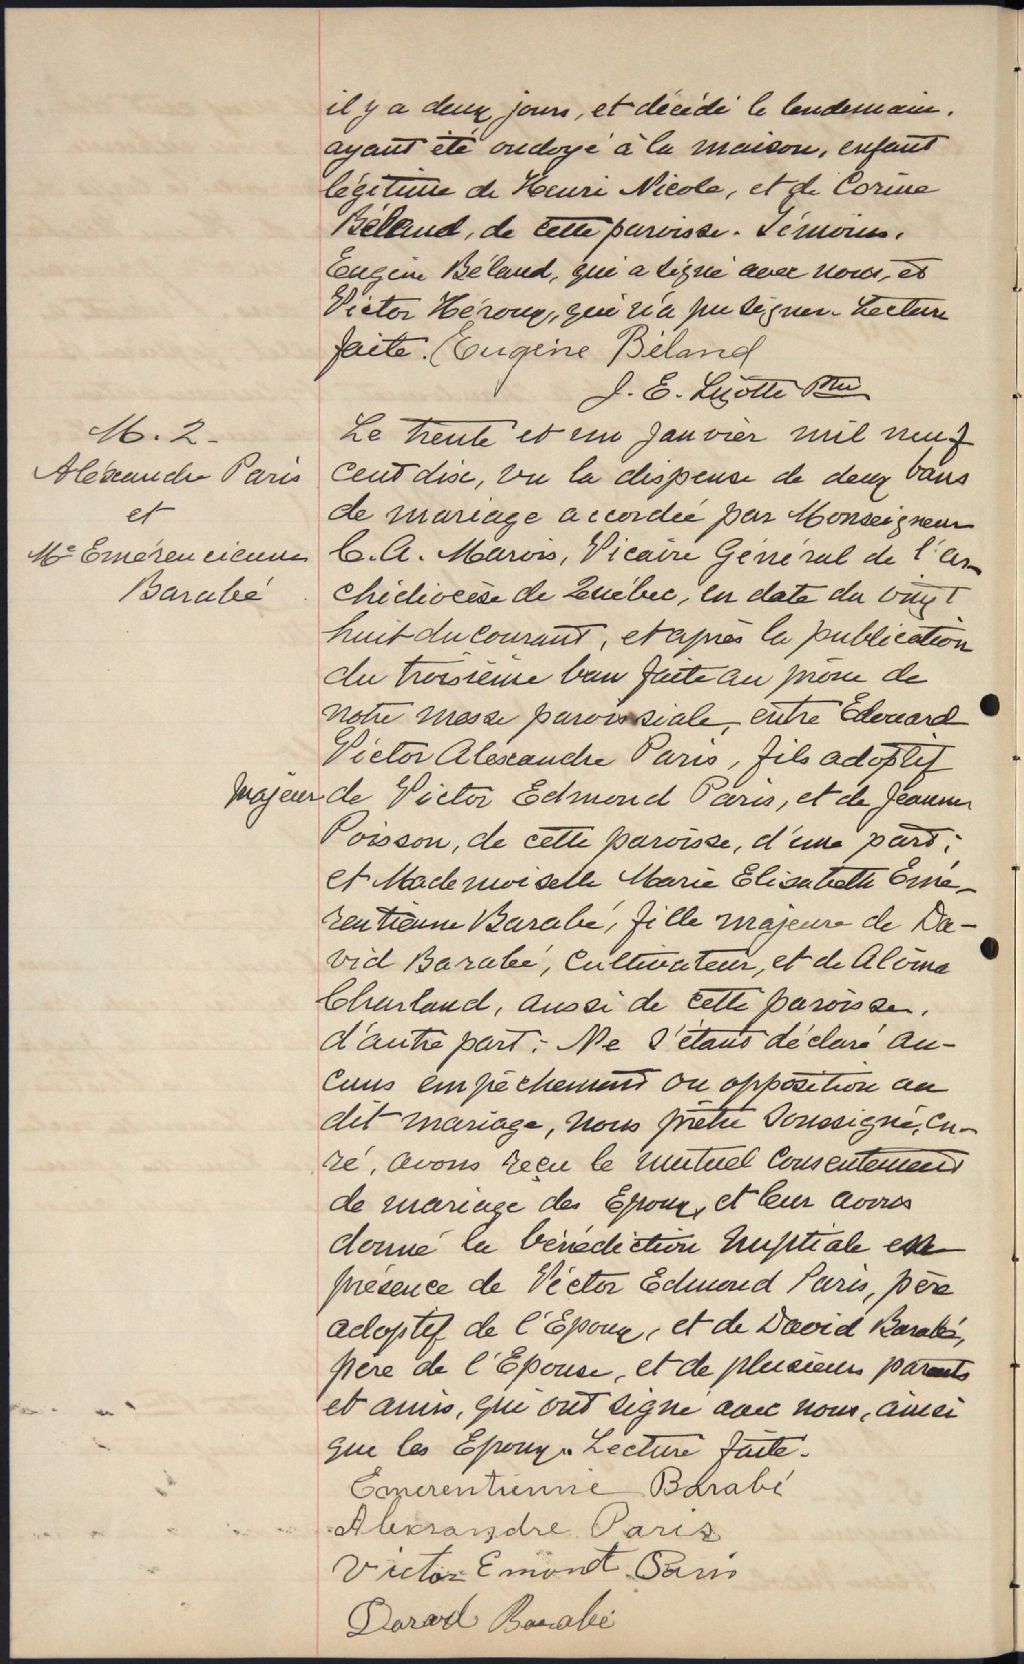 il y a deux jours, et décédé le lendemain.
ayant été ondoyé à la maison, enfant
légitime de Henri Nicole, et de Corine
Béland, de cette paroisse. Témoins.
Eugène Béland, qui a signé avec nous, et
Victor Héroux, qui n'a pu signer. Lecture
faite. Eugène Béland
J. E. Lizotte Ptre
M. 2-
Aléxandre Paris
et
Me Emérencienne
Barabé
Le trente et un Janvier mil neuf
cent dix, vu la dispense de deux bans
de mariage accordée par Monseigneur
C. A. Marois, Vicaire Général de l'ar-
chidiocèse de Québec, en date du vingt
huit du courant, et après la publication
du troisième ban faite au prône de
notre messe paroissiale, entre Edouard
Victor Alexandre Paris, fils adoptif
majeur de Victor Edmond Paris, et de Jeanne
Poisson, de cette paroisse, d'une part;
et Mademoiselle Marie Elisabeth Emé-
rentienne Barabé, fille majeure de Da-
vid Barabé, Cultivateur, et de Alvina
Charland, aussi de cette paroisse.
d'autre part: Ne s'étant déclaré au-
cuns empêchement ou opposition au
dit mariage, nous prêtre soussigné, cu-
ré, avons reçu le mutuel consentement
de mariage des Epoux, et leur avons
donné la bénédiction nuptiale en
présence de Victor Edmond Paris, père
adoptif de l'Epoux, et de David Barabé,
père de l'Epouse, et de plusieurs parents
et amis, qui ont signé avec nous, ainsi
que les Epoux. Lecture faite.
Emerentienne Barabé
Alexsandre Paris
Victor Emont Paris
David Barabé